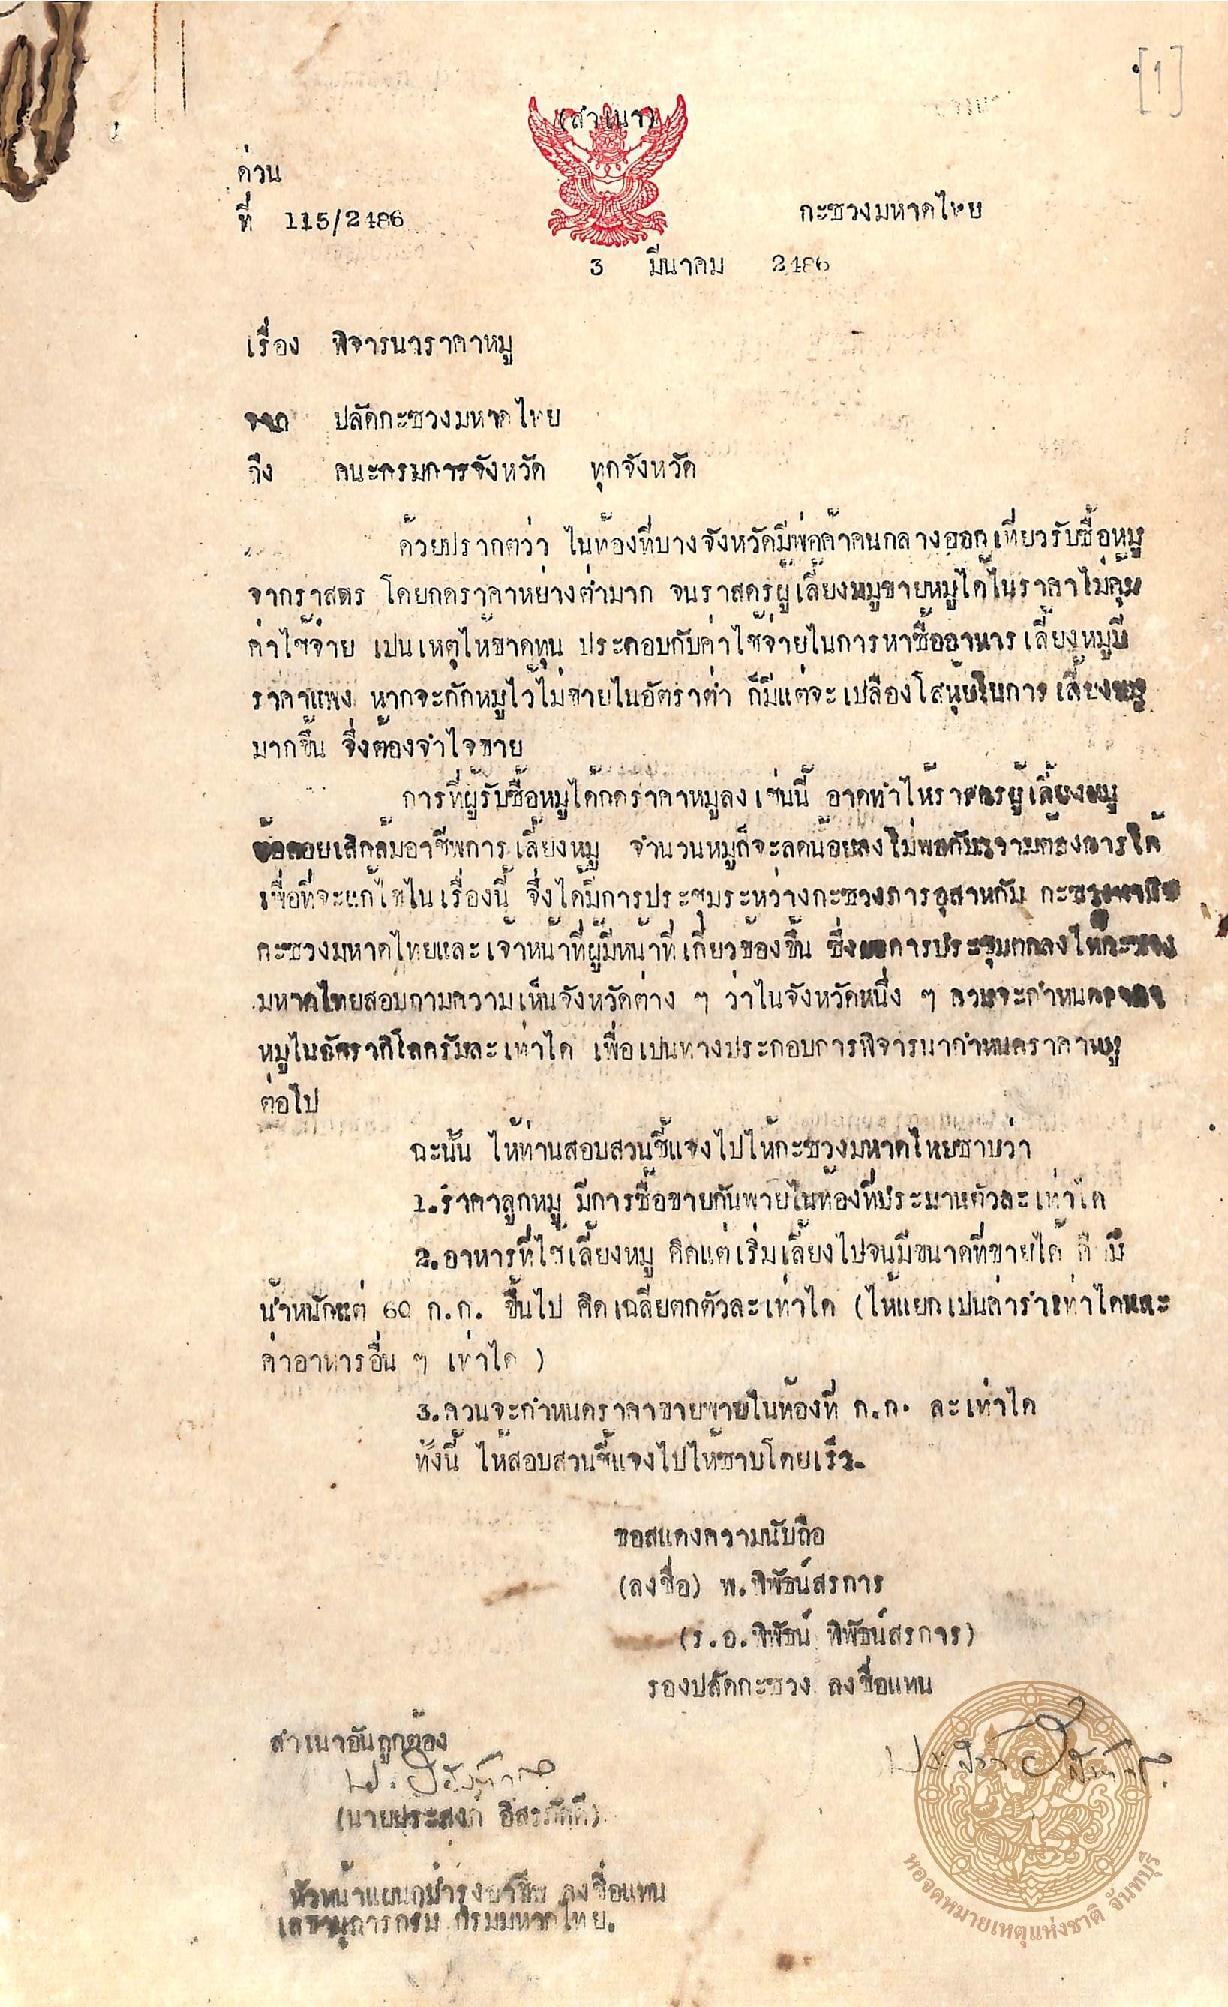 [1]
(สำเนา)
ด่วน
ที่ 115/2486
กะซวงมหาดไทย
3 มีนาคม 2486
เรื่อง พิจารนาราคาหมู
จาก ปลัดกะซวงมหาดไทย
ถึง คนะกรมการจังหวัด ทุกจังหวัด
ด้วยปรากตว่า ไนท้องที่บางจังหวัดมีพ่อค้าคนกลางออกเที่ยวรับซื้อหมู
จากราสดร โดยกดราคาหย่างต่ำมาก จนราสดรผู้เลี้ยงหมูขายหมูได้ไนราคาไม่คุ้ม
ค่าไช้จ่าย เปนเหตุไห้ขาดทุน ประกอบกับค่าไช้จ่ายในการหาซื้ออาหารเลี้ยงหมูมี
ราคาแพง หากจะกักหมูไว้ไม่ขายไนอัตราต่ำ ก็มีแต่จะเปลืองโสหุ้ยไนการเลี้ยงหมู
มากขึ้น จึ่งต้องจำใจขาย
การที่ผู้รับซื้อหมูได้กดราคาหมูลงเช่นนี้ อาดทำไห้ราสดรผู้เลี้ยงหมู
ท้อถอยเลิกล้มอาชีพการเลี้ยงหมู จำนวนหมูก็จะลดน้อยลงไม่พอกับความต้องการได้
เพื่อที่จะแก้ไขไนเรื่องนี้ จึ่งได้มีการประชุมระหว่างกะซวงการอุสาหกัม กะซวงพานิช
กะซวงมหาดไทยและเจ้าหน้าที่ผู้มีหน้าที่เกี่ยวข้องขึ้น ซึ่งผลการประชุมตกลงไห้กะซวง
มหาดไทยสอบถามความเห็นจังหวัดต่าง ๆ ว่าไนจังหวัดหนึ่ง ๆ ควนจะกำหนดราคา
หมูไนอัตรากิโลกรัมละเท่าได เพื่อเปนทางประกอบการพิจารนากำหนดราคาหมู
ต่อไป
ฉะนั้น ไห้ท่านสอบสวนชี้แจงไปไห้กะซวงมหาดไทยซาบว่า
1.ราคาลูกหมู มีการซื้อขายกันพายไนท้องที่ประมานตัวละเท่าได
2.อาหารที่ไช้เลี้ยงหมู คิดแต่เริ่มเลี้ยงไปจนมีขนาดที่ขายได้ คือมี
น้ำหนักแต่ 60 ก.ก. ขึ้นไป คิดเฉลี่ยตกตัวละเท่าได (ไห้แยกเปนค่ารำเท่าไดและ
ค่าอาหารอื่น ๆ เท่าได )
3.ควนจะกำหนดราคาขายพายไนท้องที่ ก.ก. ละเท่าได
ทั้งนี้ ไห้สอบสวนชี้แจงไปไห้ซาบโดยเร็ว.
ขอสแดงความนับถือ
(ลงชื่อ) พ.พิพัธน์สรการ
(ร.อ.พิพัธน์ พิพัธน์สรการ)
รองปลัดกะซวง ลงชื่อแทน
สำเนาอันถูกต้อง
(นายประสงค์ อิสรภักดี)
หัวหน้าแผนกบำรุงอาชีพ ลงชื่อแทน
เลขานุการกรม กรมมหาดไทย.
หอจดหมายเหตุแห่งชาติ จันทบุรี